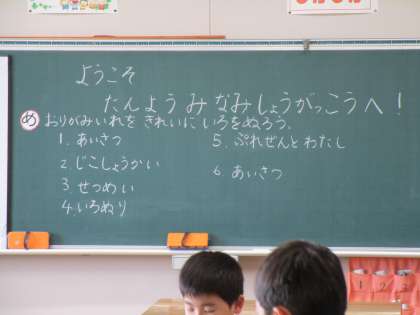 ようこそ
たんようみなみしょうがっこうへ!
め おりがみいれを きれいに いろをぬろう。
1. あいさつ
2. じこしょうかい
3 せつめい
4. いろぬり
5. ぷれぜんと わたし
6 あいさつ
1 2 3